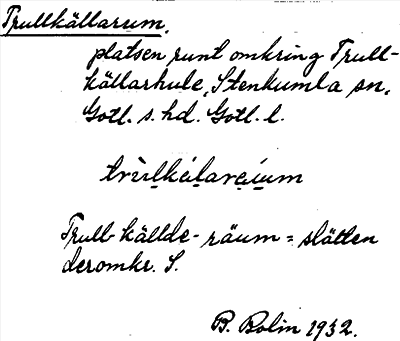 Trullkällarum.
platsen runt omkring Trull-
källarhule, Stenkumla sn,
Gotl. s. hd. Gotl. l.
Trull-källde-räum = slätten
deromkr. S.
B. Bolin 1932.